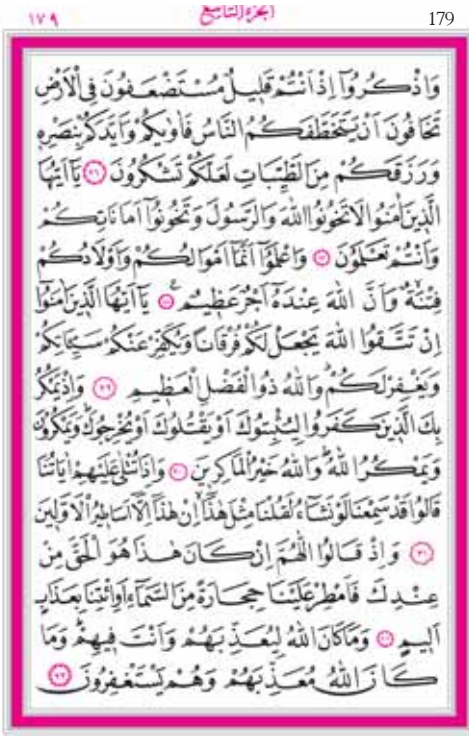 ١٧٩ الجزء التاسع 179
وَاذْكُرُٓوا اِذْ اَنْتُمْ قَلٖيلٌ مُسْتَضْعَفُونَ فِى الْاَرْضِ
تَخَافُونَ اَنْ يَتَخَطَّفَكُمُ النَّاسُ فَاٰوٰيكُمْ وَاَيَّدَكُمْ بِنَصْرِهٖ
وَرَزَقَكُمْ مِنَ الطَّيِّبَاتِ لَعَلَّكُمْ تَشْكُرُونَ ﴿٢٦﴾ يَٓا اَيُّهَا
الَّذٖينَ اٰمَنُوا لَا تَخُونُوا اللّٰهَ وَالرَّسُولَ وَتَخُونُٓوا اَمَانَاتِكُمْ
وَاَنْتُمْ تَعْلَمُونَ ﴿٢٧﴾ وَاعْلَمُٓوا اَنَّمَٓا اَمْوَالُكُمْ وَاَوْلَادُكُمْ
فِتْنَةٌ وَاَنَّ اللّٰهَ عِنْدَهُٓ اَجْرٌ عَظٖيمٌ ﴿٢٨﴾ يَٓا اَيُّهَا الَّذٖينَ اٰمَنُٓوا
اِنْ تَتَّقُوا اللّٰهَ يَجْعَلْ لَكُمْ فُرْقَاناً وَيُكَفِّرْ عَنْكُمْ سَيِّـَٔاتِكُمْ
وَيَغْفِرْ لَكُمْ وَاللّٰهُ ذُو الْفَضْلِ الْعَظٖيمِ ﴿٢٩﴾ وَاِذْ يَمْكُرُ
بِكَ الَّذٖينَ كَفَرُوا لِيُثْبِتُوكَ اَوْ يَقْتُلُوكَ اَوْ يُخْرِجُوكَ وَيَمْكُرُونَ
وَيَمْكُرُ اللّٰهُ وَاللّٰهُ خَيْرُ الْمَاكِرٖينَ ﴿٣٠﴾ وَاِذَا تُتْلٰى عَلَيْهِمْ اٰيَاتُنَا
قَالُوا قَدْ سَمِعْنَا لَوْ نَشَٓاءُ لَقُلْنَا مِثْلَ هٰذَٓا اِنْ هٰذَٓا اِلَّٓا اَسَاطٖيرُ الْاَوَّلٖينَ
﴿٣١﴾ وَاِذْ قَالُوا اللّٰهُمَّ اِنْ كَانَ هٰذَا هُوَ الْحَقَّ مِنْ
عِنْدِكَ فَاَمْطِرْ عَلَيْنَا حِجَارَةً مِنَ السَّمَٓاءِ اَوِ ائْتِنَا بِعَذَابٍ
اَلٖيمٍ ﴿٣٢﴾ وَمَا كَانَ اللّٰهُ لِيُعَذِّبَهُمْ وَاَنْتَ فٖيهِمْ وَمَا
كَانَ اللّٰهُ مُعَذِّبَهُمْ وَهُمْ يَسْتَغْفِرُونَ ﴿٣٣﴾